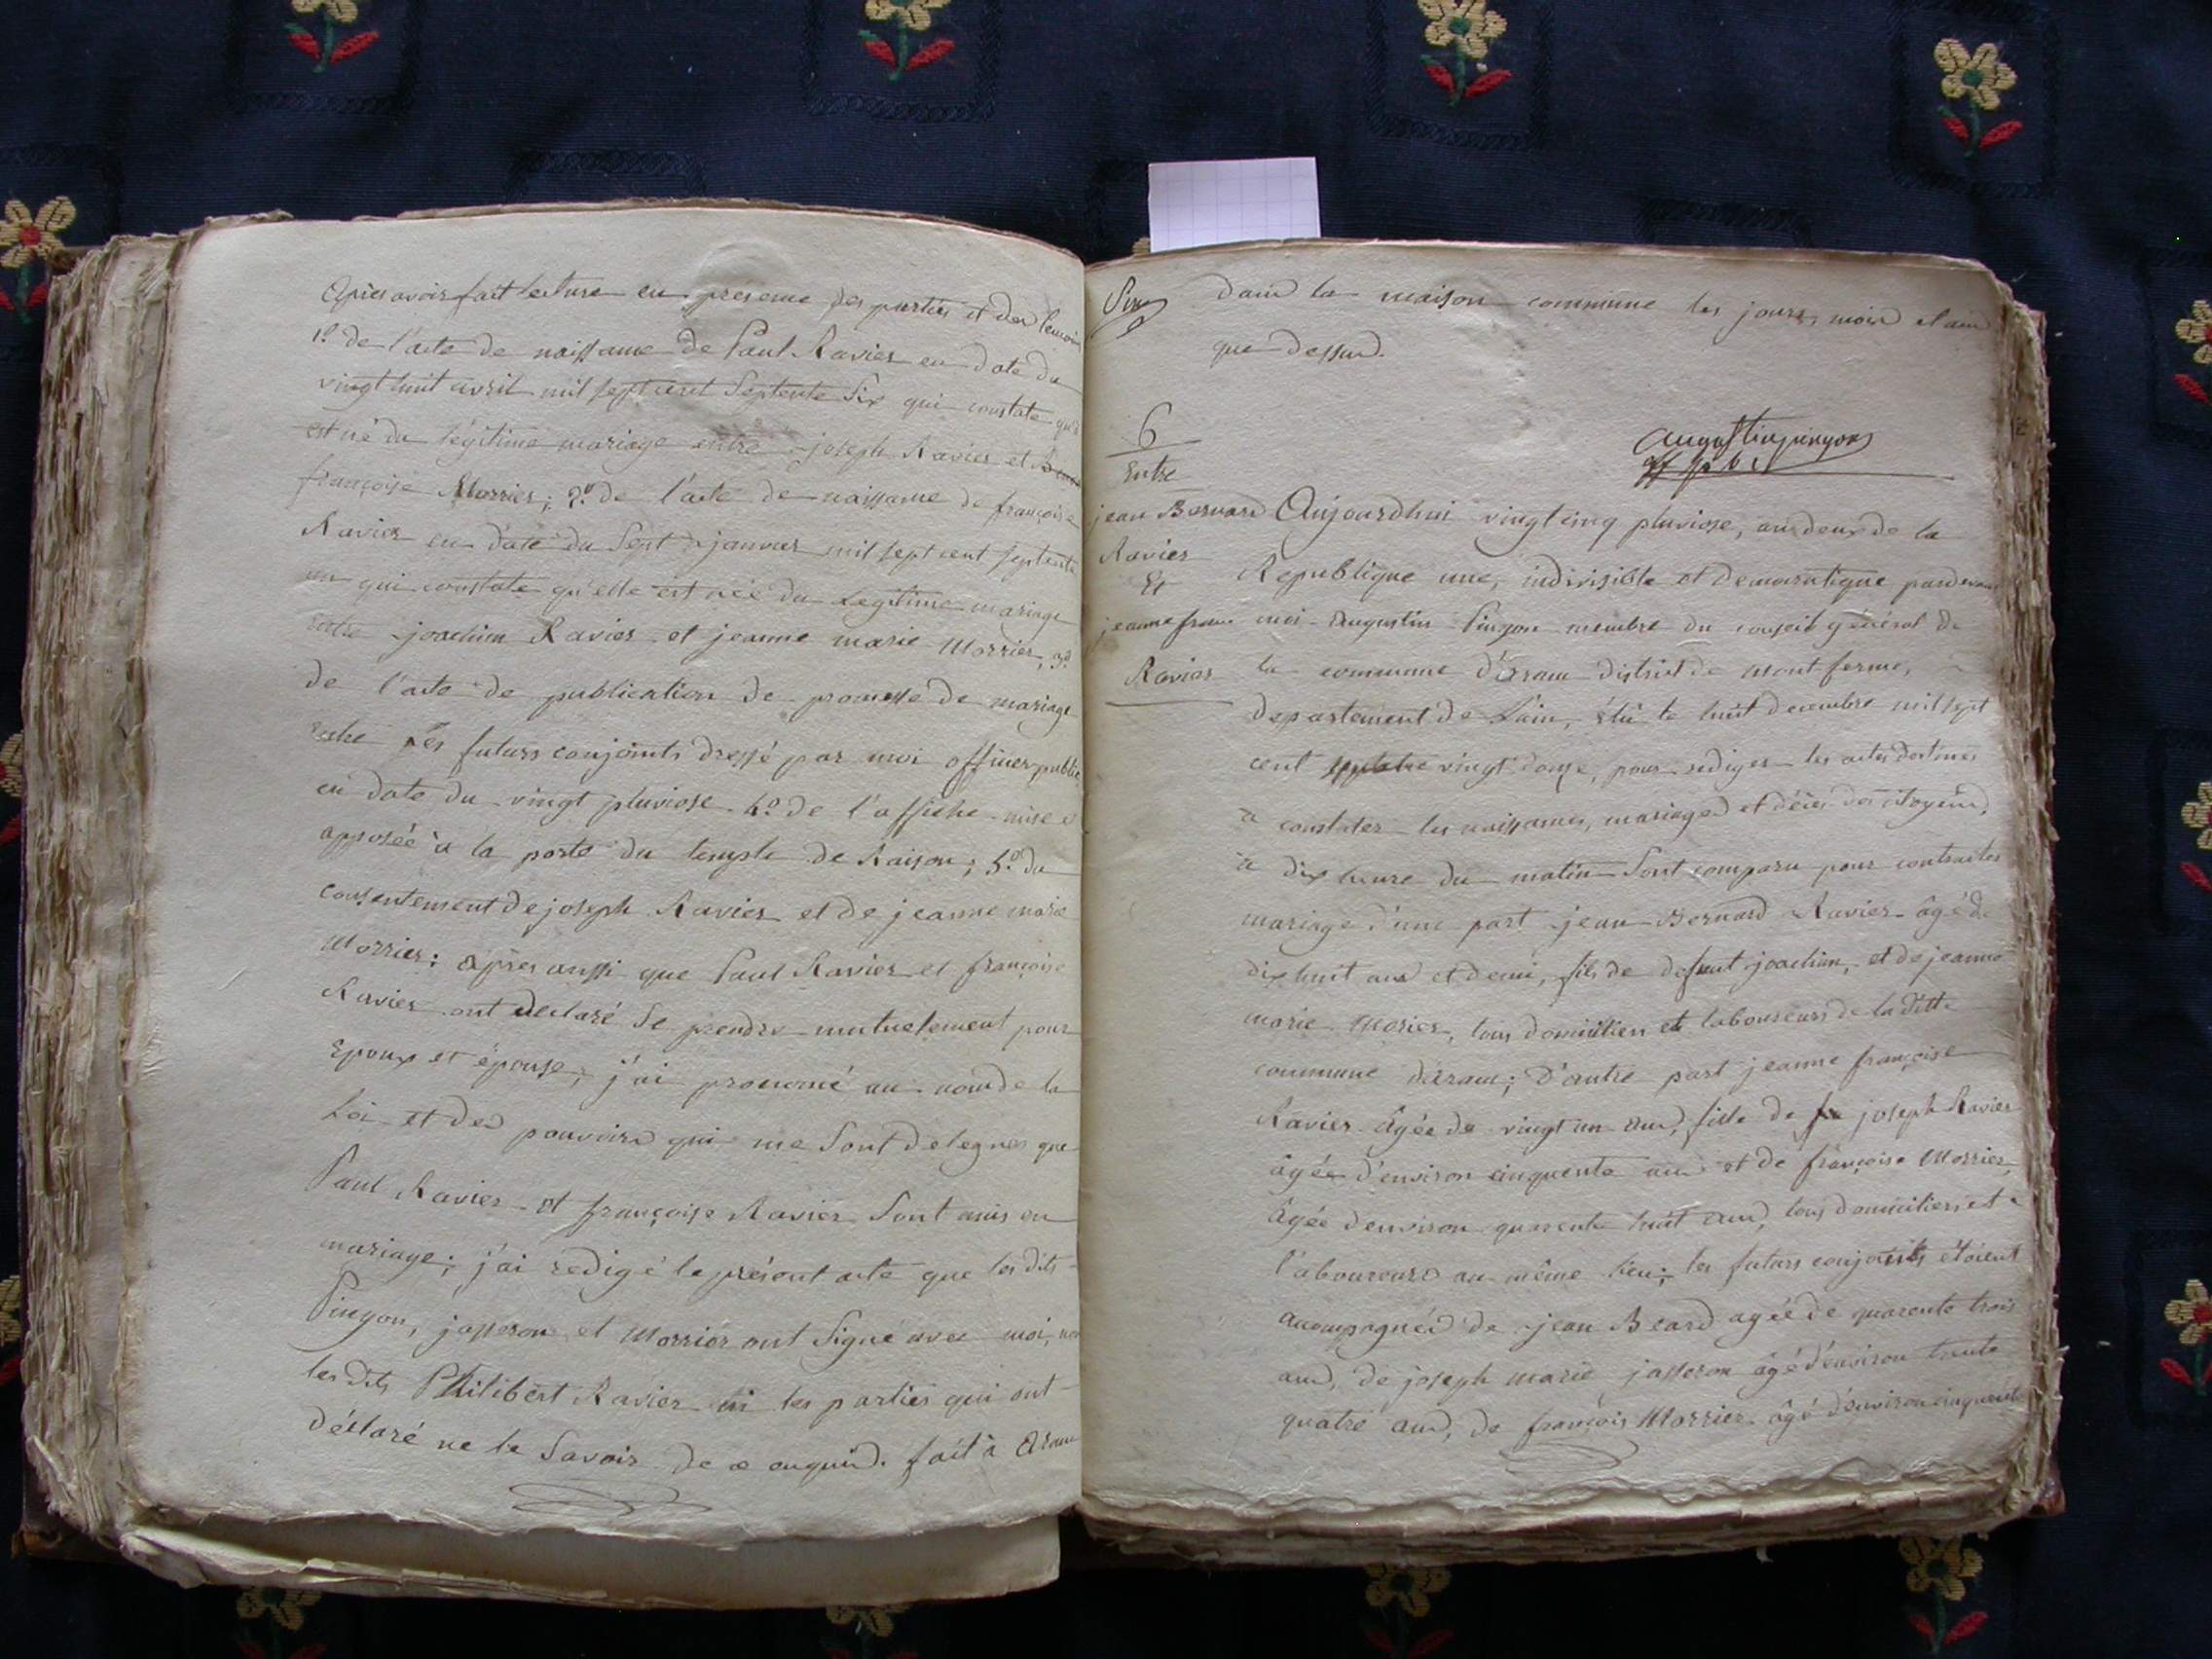 Après avoir fait lecture en presence des parties et des temoins
1.º de l'acte de naissance de Paul Ravier en date du
vingt huit avril mil sept cent septente six qui constate qu'il
est né du légitime mariage entre joseph Ravier et
françoise Morrier; 2.º de l'acte de naissance de françoise
Ravier en date du sept janvier mil sept cent septente
un qui constate qu'elle est née du Legitime mariage
entre joachim Ravier et jeanne marie Morrier, 3.º
de l'acte de publication de promesse de mariage
entre les futurs conjoints dressé par moi officier public
en date du vingt pluviose 4.º de l'affiche mise et
apposée à la porte du temple de Raison; 5.º du
consentement de joseph Ravier et de jeanne marie
Morrier: après aussi que Paul Ravier et françoise
Ravier ont declaré se prendre mutuelement pour
Epoux et épouse, j'ai prononcé au nom de la
Loi et des pouvoirs qui me sont delegués que
Paul Ravier et françoise Ravier sont unis en
mariage; j'ai redigé le présent acte que les dits
Pingon, josseron et Morrier ont signé avec moi, non
les dits Philibert Ravier ni les parties qui ont
déclaré ne le savoir de ce enquis. fait à Aram
dans la maison commune les jours, mois et an
que dessus.
augustin pingon
off pub
6
Entre
jean Bernard
Ravier
Et
jeanne franc
Ravier
Aujourdhui vingt cinq pluviose, an deux de la
Republique une, indivisible et democratique pardevant
moi Augustin Pingon membre du conseil général de
la commune d'Eram district de Mont ferme,
departement de L'ain, élu le huit decembre mil sept
cent vingt donze, pour rediger les actes destinés
a constater les naissances, mariages et décès des citoyens,
a dix heure du matin sont comparu pour contracter
mariage d'une part jean Bernard Ravier âgé de
dix huit ans et demi, fils de defunt joachim, et de jeanne
marie Morier, tous domiciliers et laboureurs de la ditte
commune d'éram; D'autre part jeanne françoise
Ravier âgée de vingt un ans, fille de joseph Ravier
âgée d'environ cinquente ans et de françoise Morrier,
âgée d'environ quarente huit ans, tous domiciliers et
l'aboureurs au même lieu; les futurs conjoints étoient
acompagnés de jean Beard agée de quarente trois
ans, de joseph marie josseron âgé d'environ trente
quatre ans, de françois Morrier âgé d'environ cinquente